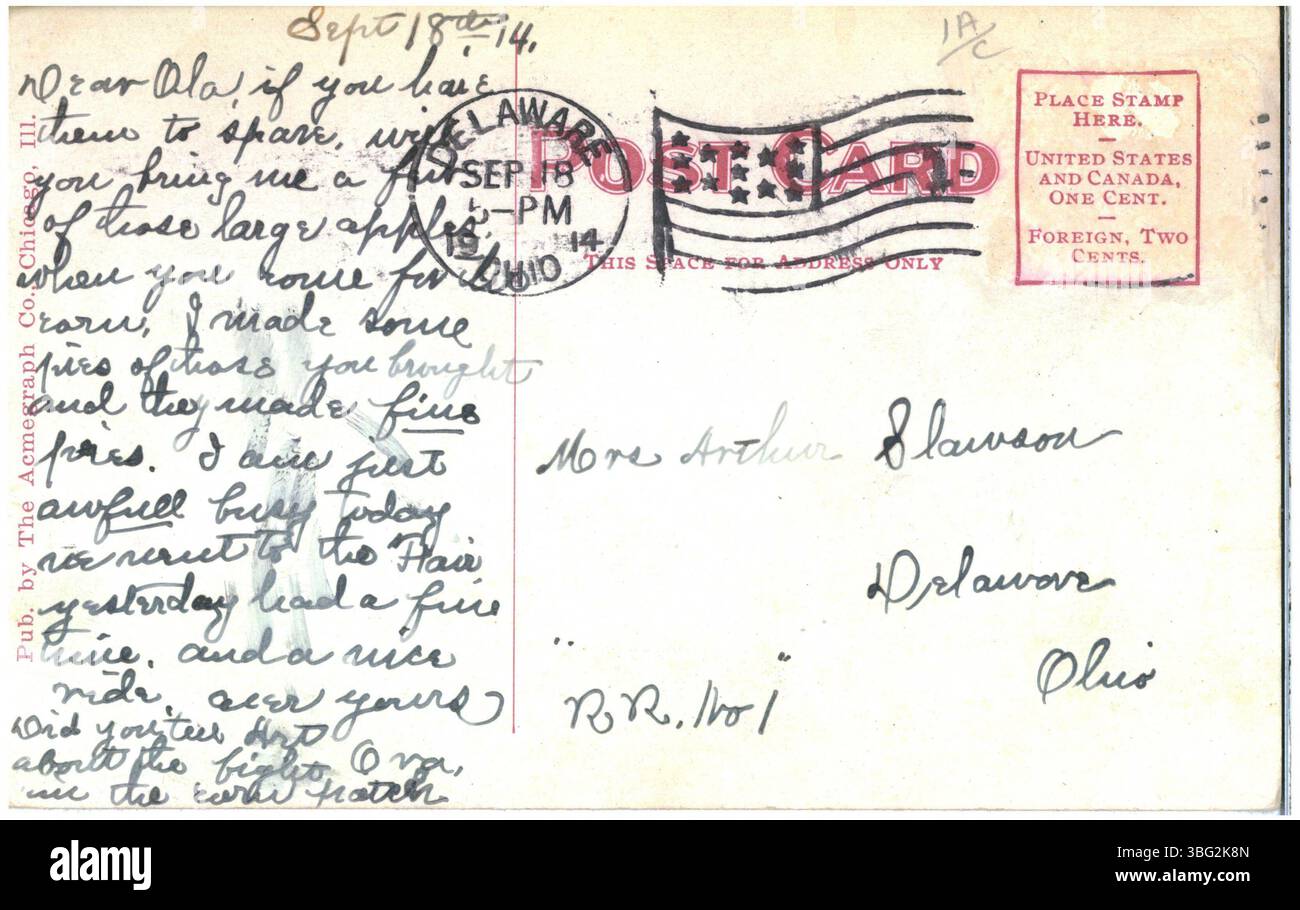 Sept 18th 14.
1A/C
Dear Ola, if you have
them to spare, will
you bring me a few
of those large apples,
when you come for
corn, I made some
pies of those you brought
and they made fine
pies. I am just
awfull busy today
we went to the Fair
yesterday had a fine
time. and a nice
ride. ever yours
Ova.
Did you tell Art
about the fight
in the corn patch
Pub. by The Acmegraph Co., Chicago, Ill.
DELAWARE
SEP 18
5-PM
1914
OHIO
POST CARD
THIS SPACE FOR ADDRESS ONLY
PLACE STAMP
HERE.
UNITED STATES
AND CANADA,
ONE CENT.
FOREIGN, TWO
CENTS.
Mrs Arthur Slawson
Delaware
Ohio
"R.R. No 1"
alamy
Image ID: 3BG2K8N
www.alamy.com